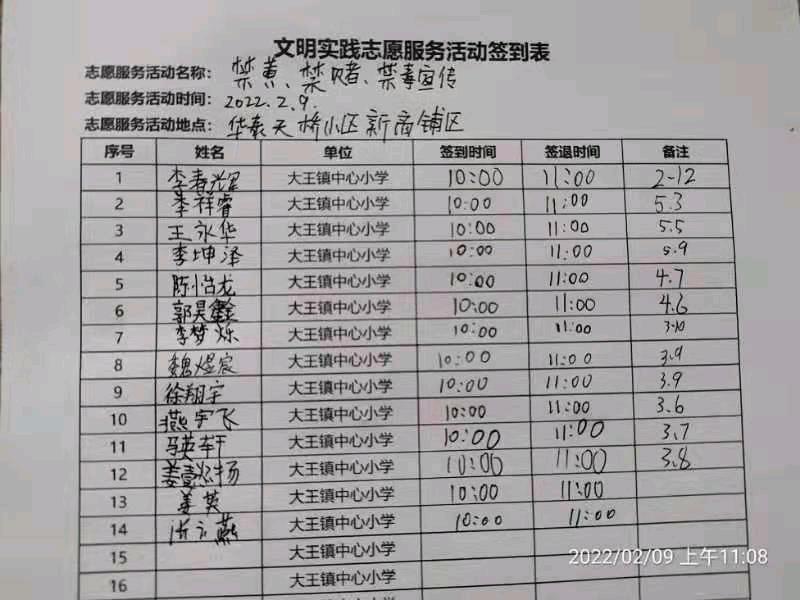 文明实践志愿服务活动签到表
志愿服务活动名称： 禁黄、禁赌、禁毒宣传
志愿服务活动时间： 2022.2.9.
志愿服务活动地点： 华泰天桥小区新商铺区
序号 姓名 单位 签到时间 签退时间 备注
1 李春光 大王镇中心小学 10:00 11:00 2-12
2 李祥睿 大王镇中心小学 10:00 11:00 5.3
3 王永华 大王镇中心小学 10:00 11:00 5.5
4 李坤泽 大王镇中心小学 10:00 11:00 5.9
5 陈怡龙 大王镇中心小学 10:00 11:00 4.7
6 郭昊鑫 大王镇中心小学 10:00 11:00 4.6
7 李梦烁 大王镇中心小学 10:00 11:00 3.10
8 魏煜宸 大王镇中心小学 10:00 11:00 3.9
9 徐翔宇 大王镇中心小学 10:00 11:00 3.9
10 燕宇飞 大王镇中心小学 10:00 11:00 3.6
11 马英轩 大王镇中心小学 10:00 11:00 3.7
12 姜懿扬 大王镇中心小学 10:00 11:00 3.8
13 姜英 大王镇中心小学 10:00 11:00
14 大王镇中心小学 10:00 11:00
15 大王镇中心小学
16 大王镇中心小学
2022/02/09 上午11:08